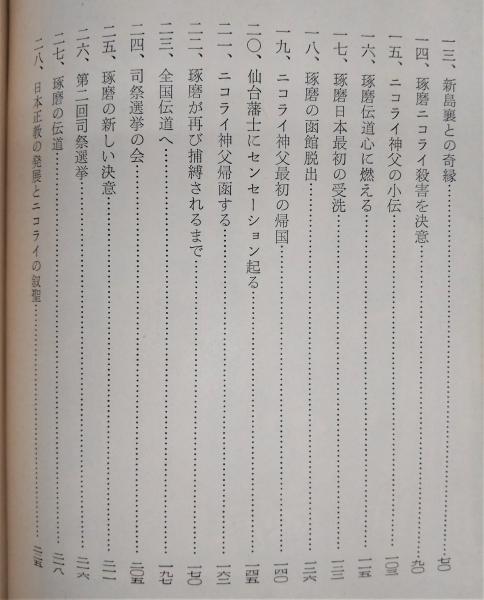 一三、新島襄との奇縁……七〇
一四、琢磨ニコライ殺害を決意……九〇
一五、ニコライ神父の小伝……一〇三
一六、琢磨伝道心に燃える……一一五
一七、琢磨日本最初の受洗……一二二
一八、琢磨の函館脱出……一二六
一九、ニコライ神父最初の帰国……一四〇
二〇、仙台藩士にセンセーション起る……一四五
二一、ニコライ神父帰函する……一六二
二二、琢磨が再び捕縛されるまで……一七〇
二三、全国伝道へ……一九七
二四、司祭選挙の会……二〇五
二五、琢磨の新しい決意……二一一
二六、第二回司祭選挙……二一六
二七、琢磨の伝道……二一八
二八、日本正教の発展とニコライの叙聖……二二五